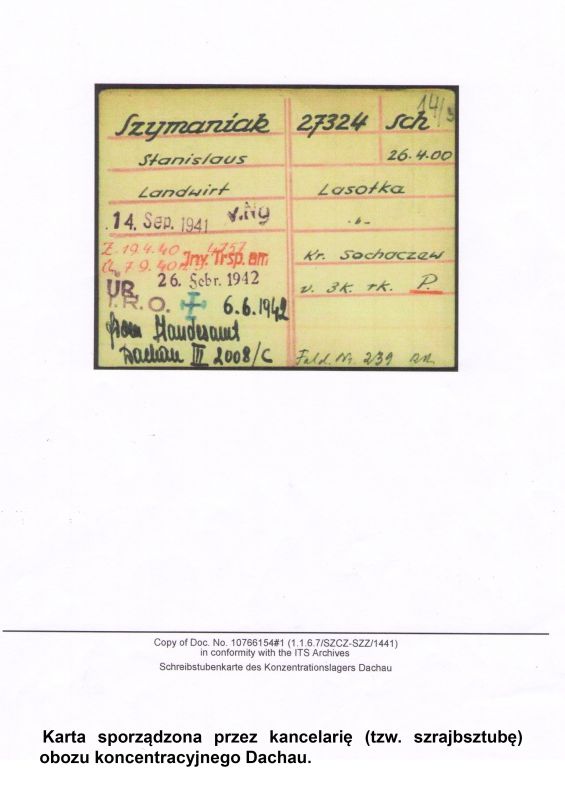 14/3
Szymaniak 27324 Sch
Stanislaus 26.4.00
Landwirt Lasotka
14. Sep. 1941 v. Ng -"-
Z. 19.4.40 4757
7.9.40 Inv. Trsp. am Kr. Sochaczew
26. Febr. 1942 v. 3k. rk. P.
UB
I.R.O. 6.6.1942
Standesamt
Dachau III 2008/C Fald. Nr. 239
Copy of Doc. No. 10766154#1 (1.1.6.7/SZCZ-SZZ/1441)
in conformity with the ITS Archives
Schreibstubenkarte des Konzentrationslagers Dachau
Karta sporządzona przez kancelarię (tzw. szrajbsztubę)
obozu koncentracyjnego Dachau.